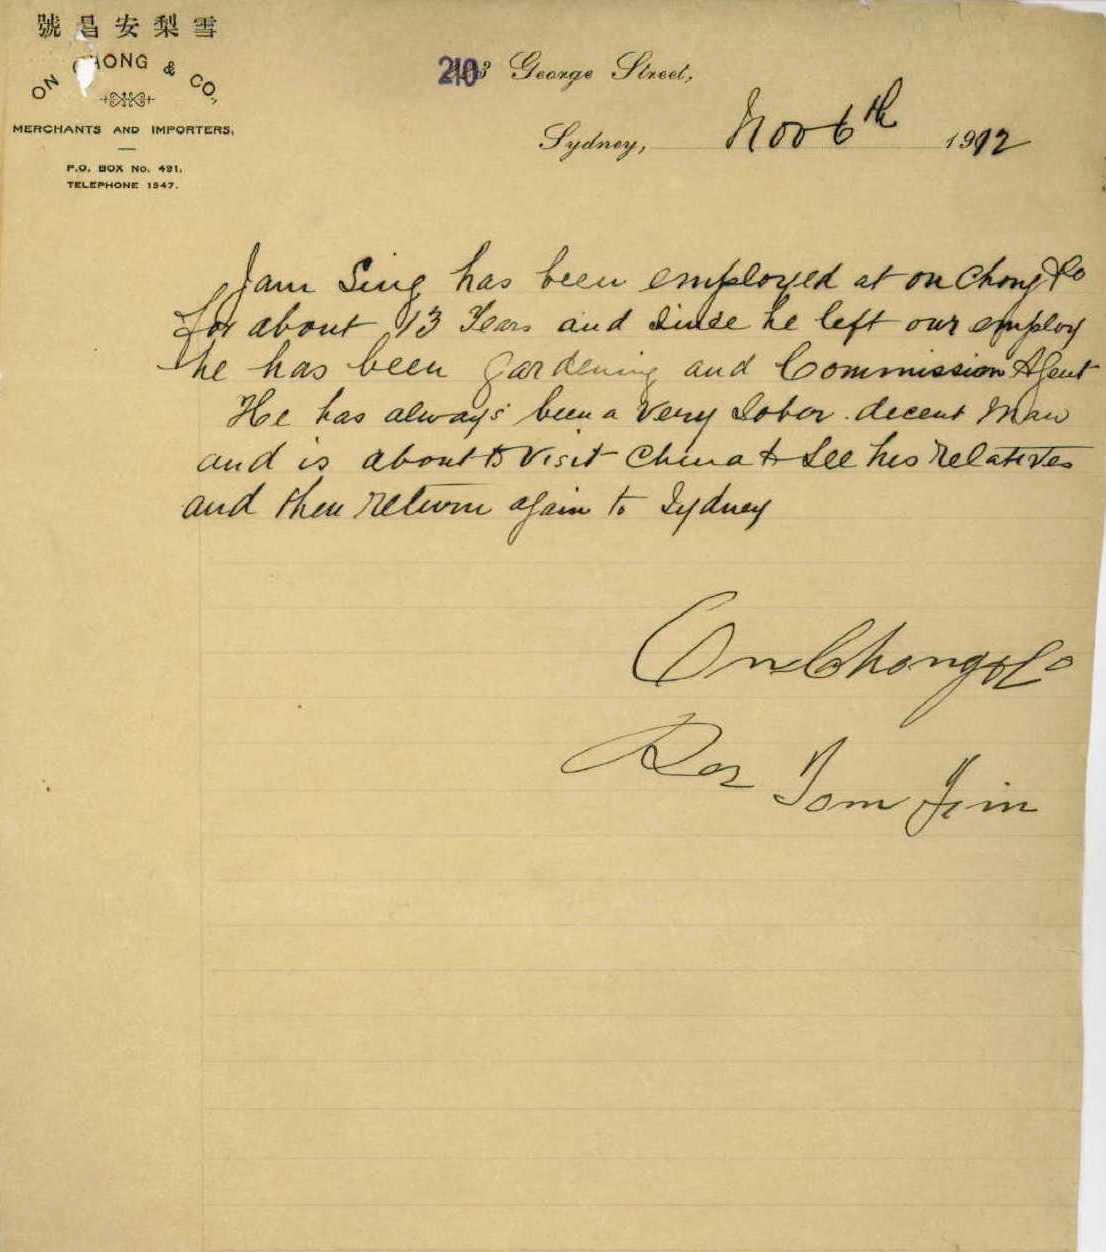 號昌安梨雪
ON CHONG & CO.,
MERCHANTS AND IMPORTERS,
P.O. BOX No. 491.
TELEPHONE 1547.
210 George Street,
Sydney, Nov 6th 1912
Jam Sing has been employed at on Chong & Co
for about 13 Years and Since he left our employ
he has been gardening and Commission Agent
He has always been a Very Sober decent Man
and is about to Visit China to See his relatives
and then return again to Sydney
On Chong & Co
Per Tom Jim